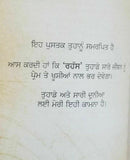 ਇਹ ਪੁਸਤਕ ਤੁਹਾਨੂੰ ਸਮਰਪਿਤ ਹੈ
ਆਸ ਕਰਦੀ ਹਾਂ ਕਿ 'ਰਹੱਸ' ਤੁਹਾਡੇ ਸਾਰੇ ਜੀਵਨ ਨੂੰ
ਪ੍ਰੇਮ ਤੇ ਖੁਸ਼ੀਆਂ ਨਾਲ ਭਰ ਦੇਵੇਗਾ।
ਤੁਹਾਡੇ ਅਤੇ ਸਾਰੀ ਦੁਨੀਆ
ਲਈ ਮੇਰੀ ਇਹੀ ਕਾਮਨਾ ਹੈ।